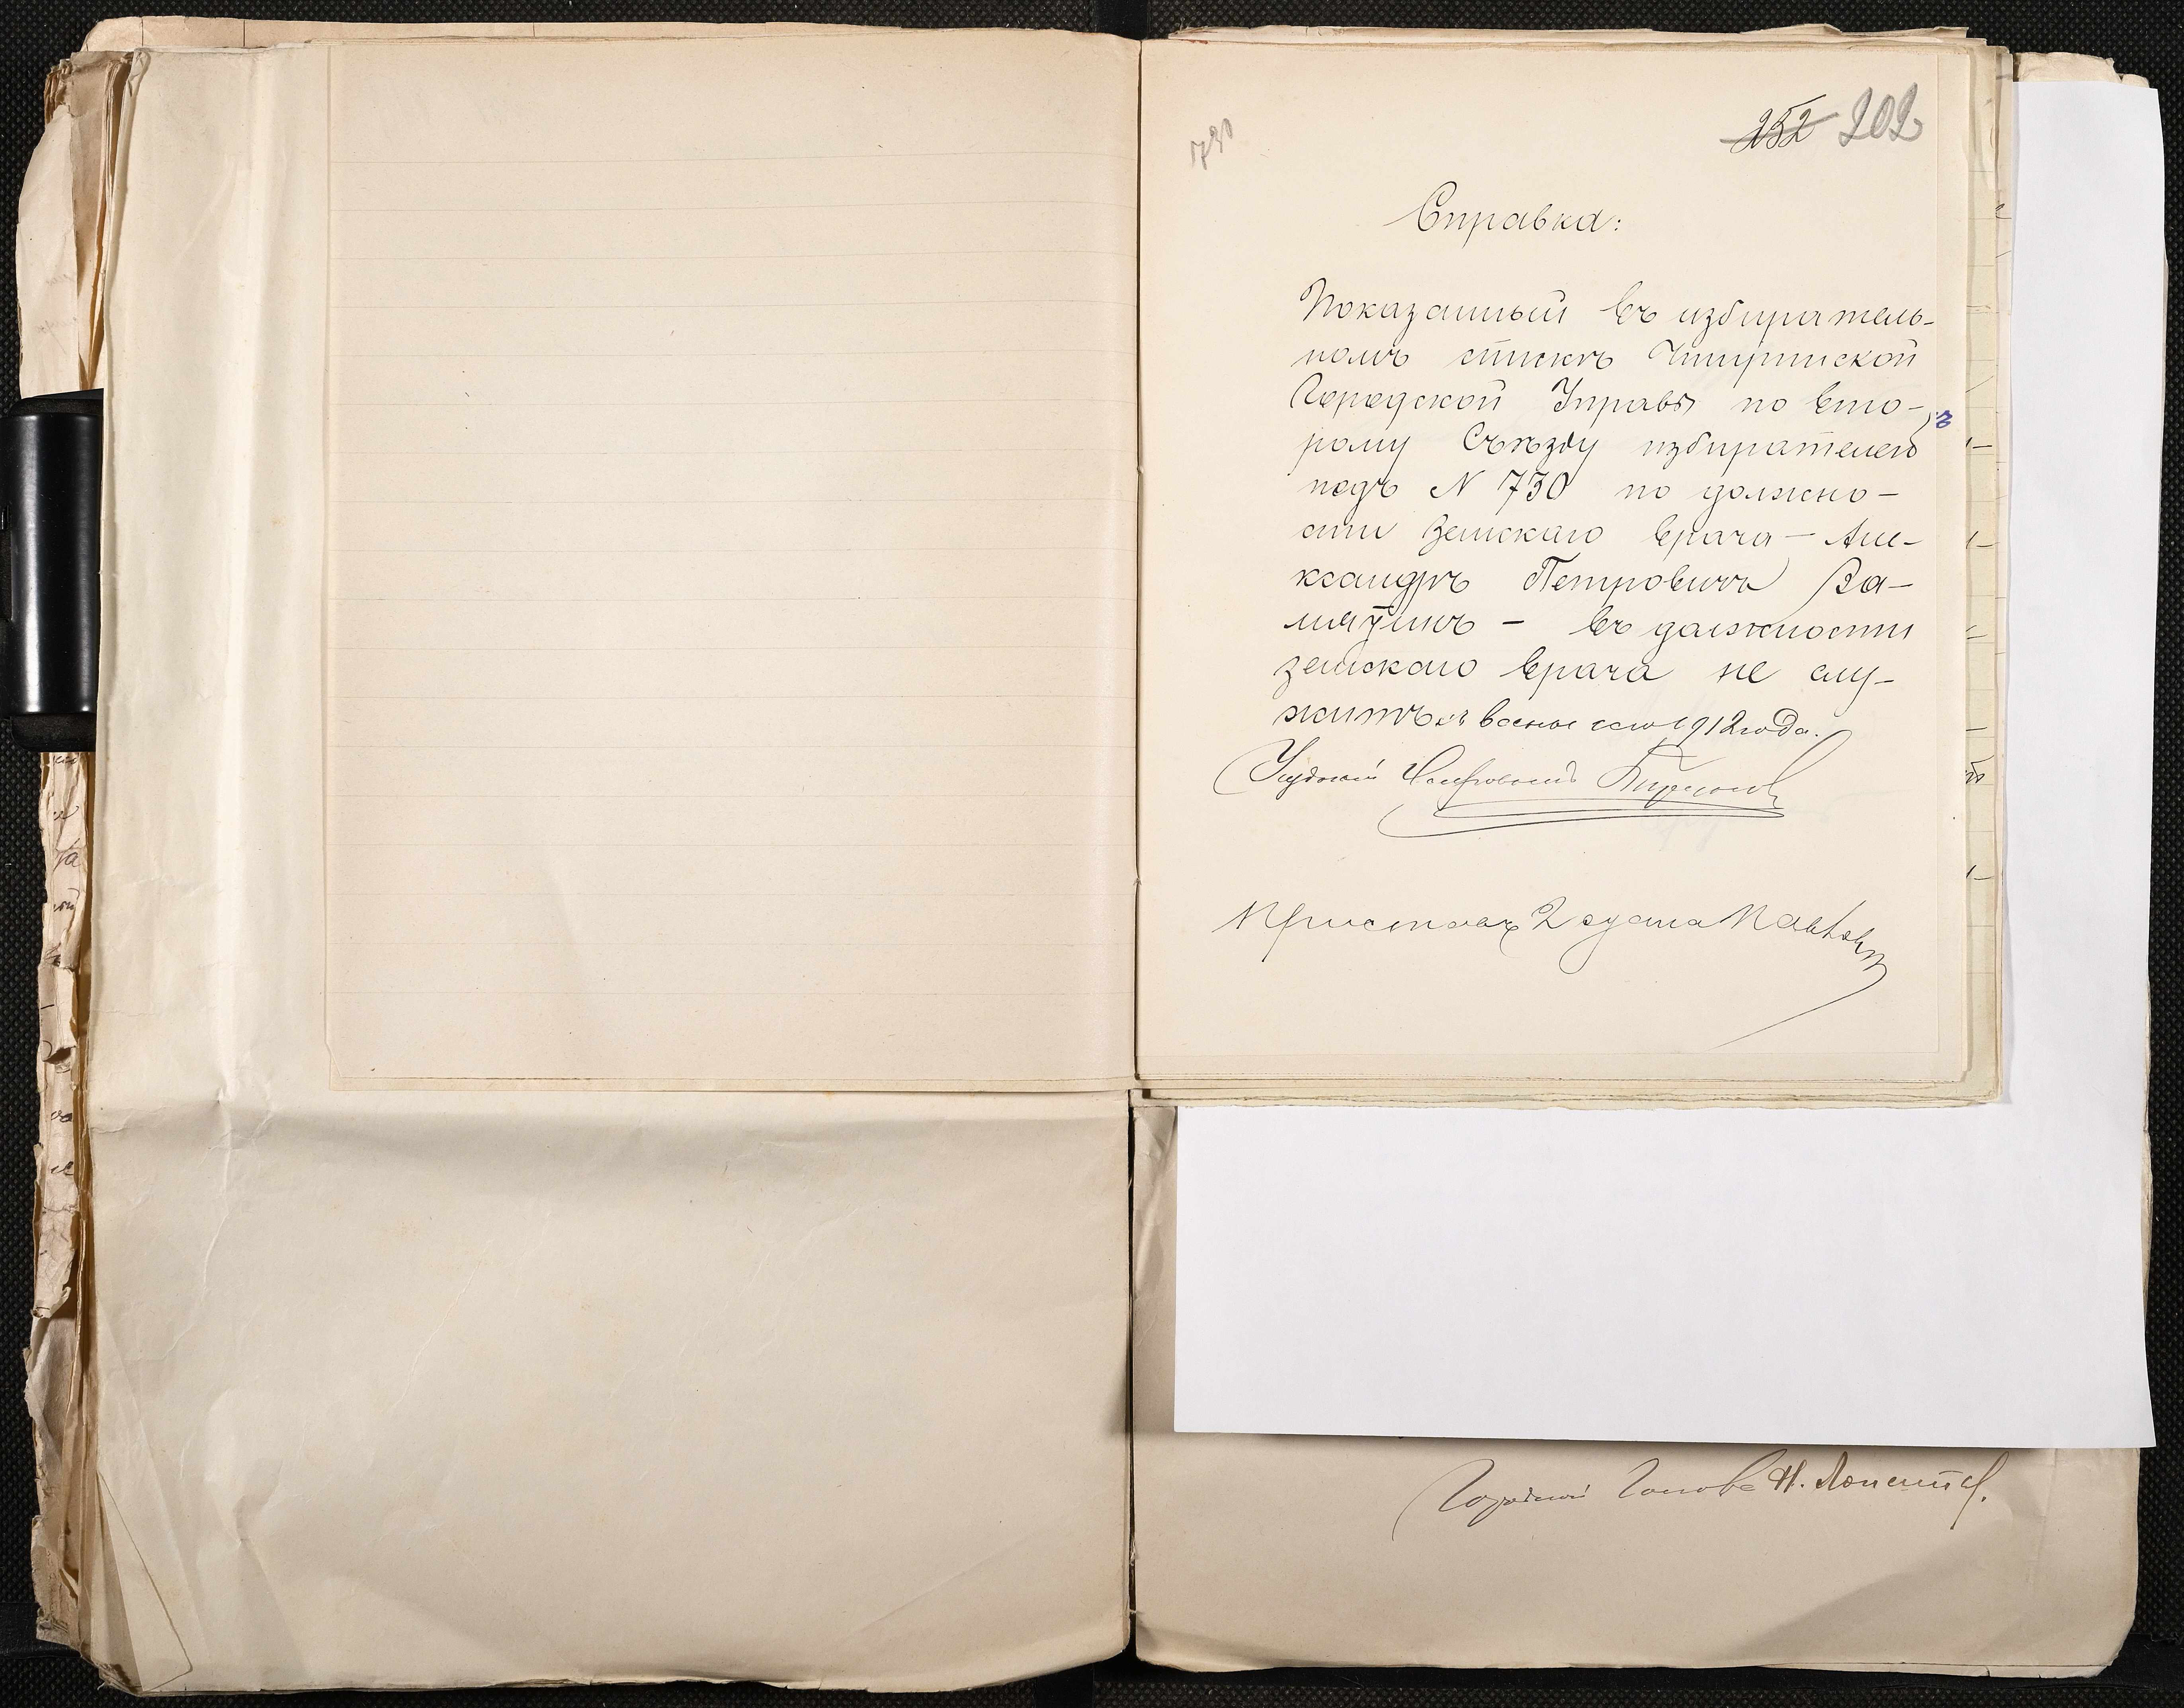 730
252 202
Справка:
Показанный въ избиратель-
номъ списке Чигиринской
Городской Управы по вто-
рому Съѣзду избирателей
подъ N 730 по должно-
сти Земскаго врача - Але-
ксандръ Петровичъ За-
мятинъ - въ должности
земскаго врача не слу-
житъ съ весны сего 1912 года.
Уѣздный Исправникъ
Приставъ 2 стана
Городской Голова Н.